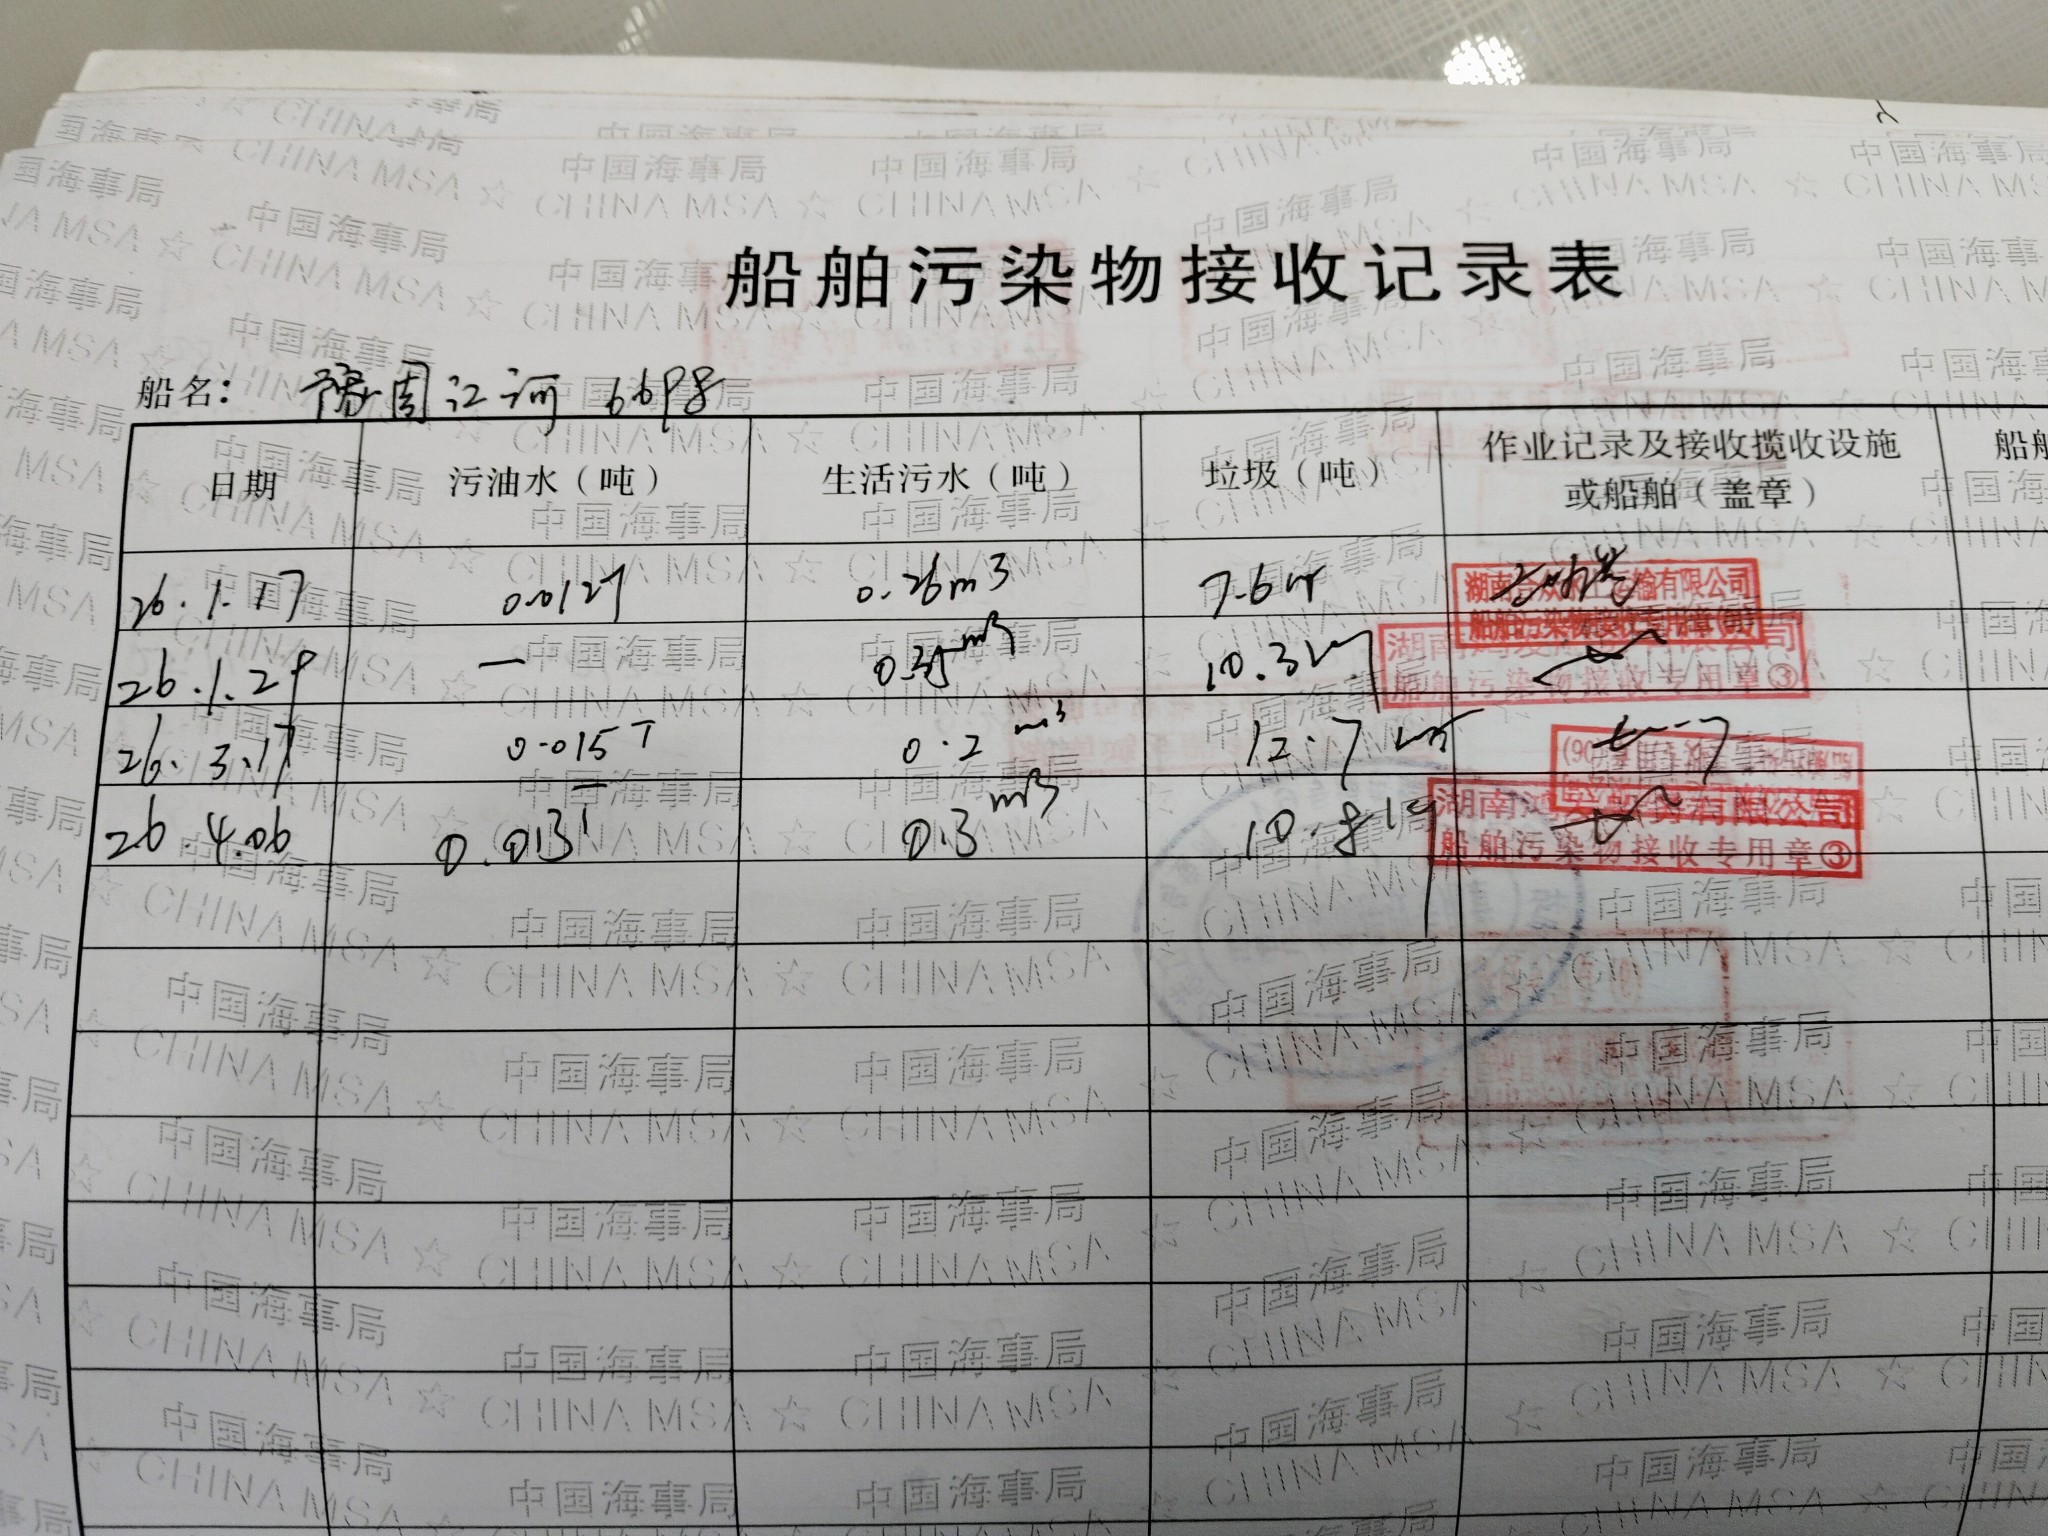 船舶污染物接收记录表
船名: 豫周江河 669号
日期 污油水（吨） 生活污水（吨） 垃圾（吨） 作业记录及接收揽收设施或船舶（盖章） 船舶
26.1.17 0.012T 0.26m3 7.6
26.1.29 — 0.35m3 10.3
26.3.17 0.015T 0.2m3 12.7
26.4.06 0.013T 0.3m3 10.8
湖南 运输有限公司
船舶污染物接收专用章
湖南 有限公司
船舶污染物接收专用章③
湖南 有限公司
船舶污染物接收专用章③
中国海事局
CHINA MSA